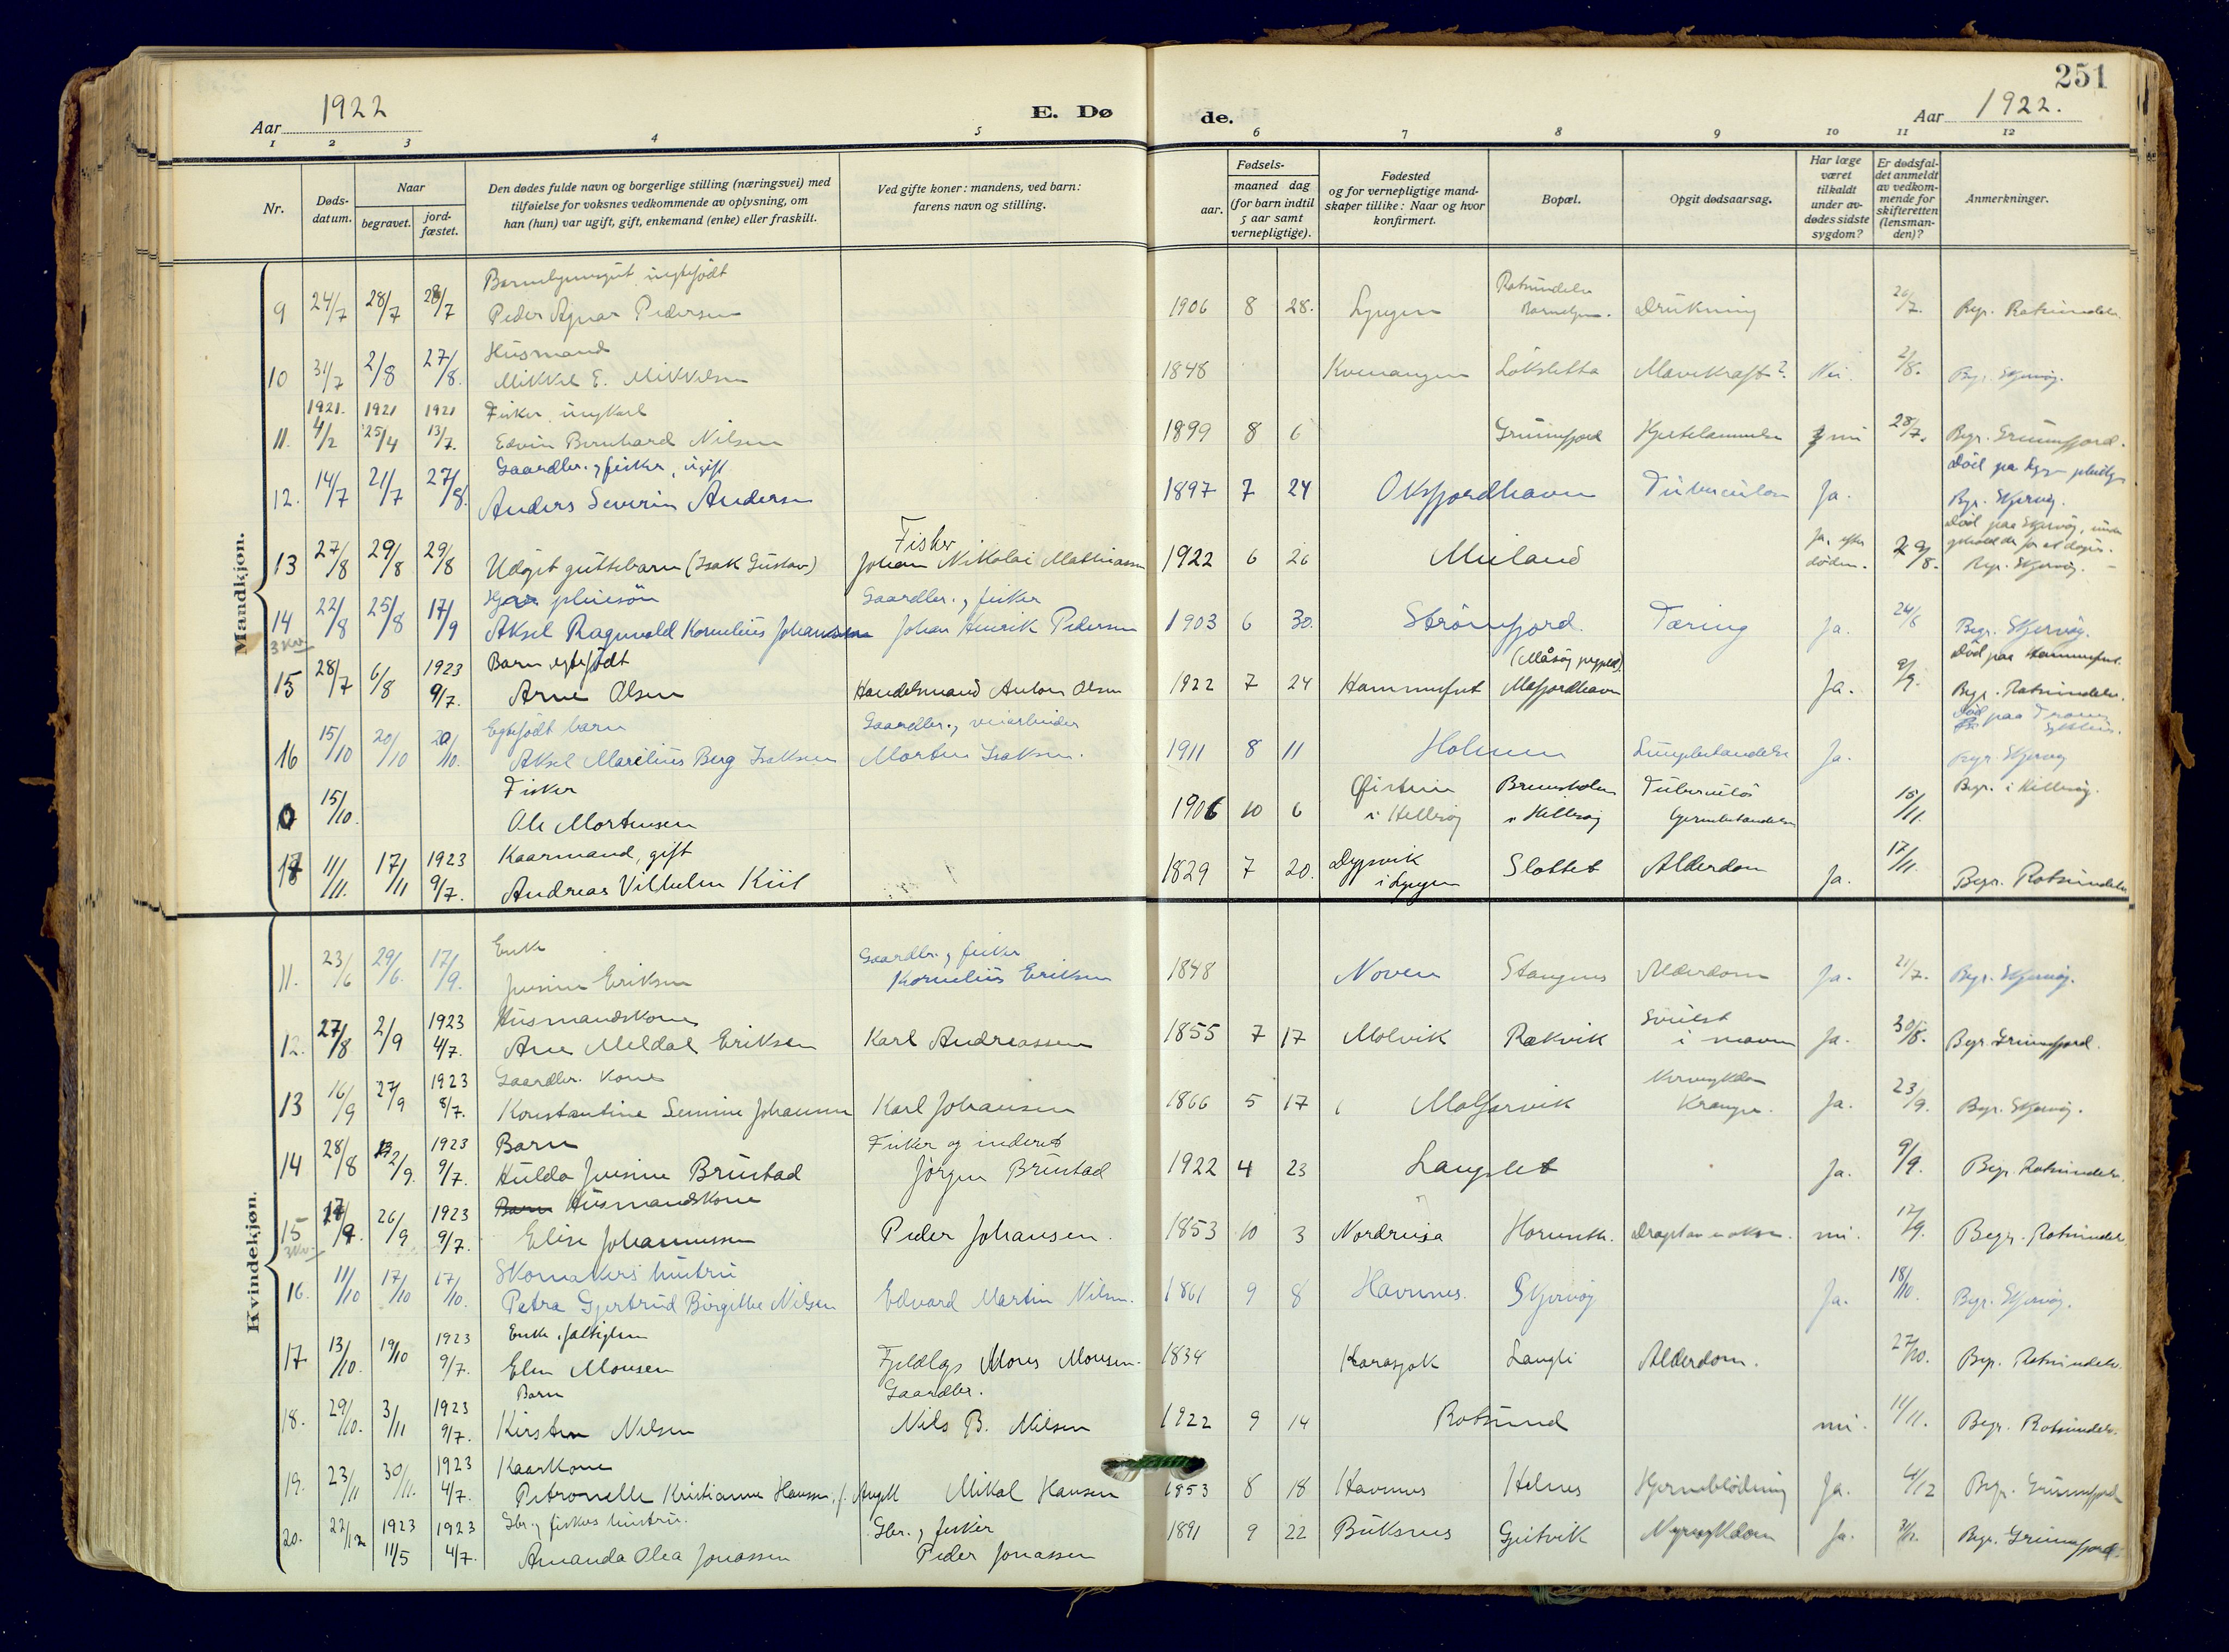 251
Aar 1922
E. Dø
de.
Aar 1922.
1 2 3 4 5 6 7 8 9 10 11 12
Nr.
Døds-
datum.
Naar
begravet.
jord-
fæstet.
Den dødes fulde navn og borgerlige stilling (næringsvei) med
tilføielse for voksnes vedkommende av oplysning, om
han (hun) var ugift, gift, enkemand (enke) eller fraskilt.
Ved gifte koner: mandens, ved barn:
farens navn og stilling.
Fødsels-
aar.
maaned dag
(for barn indtil
5 aar samt
vernepligtige).
Fødested
og for vernepligtige mand-
skaper tillike: Naar og hvor
konfirmert.
Bopæl.
Opgit dødsaarsag.
Har læge
været
tilkaldt
under av-
dødes sidste
sygdom?
Er dødsfal-
det anmeldt
av vedkom-
mende for
skifteretten
(lensman-
den)?
Anmerkninger.
Mandkjøn.
9 24/7 28/7 28/7
Peder Agnar Pedersen
1906 8 28. Lyngen Drukning 26/7.
Husmand
10 31/7 2/8 27/8.
Mikkel E. Mikkelsen
1848 Kvenangen Løksletta Mavekraft? Nei. 2/8. Begr. Skjervøy.
1921. 1921 1921 Fisker, ungkarl
11. 4/2 25/4 13/7.
Edvin Bernhard Nilsen
1899 8 6 Grunnfjord nei 28/7. Begr. Grunnfjord.
Gaardbr. og fisker, ugift
12. 14/7 21/7 27/8.
Anders Severin Andersen
1897 7 24 Oksfjordhavn Tuberculose Ja. Begr. Skjervøy.
Fisker
13 27/8 29/8 29/8 Udøpt guttebarn (Isak Gustav) Johan Nikolai Mathiassen
1922 6 26 Meiland Ja, efter
døden. 29/8. Begr. Skjervøy.
pleiesøn Gaardbr. og fisker
14 22/8 25/8 17/9
Aksel Ragnvald Kornelius Johansen Johan Henrik Pedersen
1903 6 30. Strømfjord. Tæring Ja. 24/8 Begr. Skjervøy.
Død paa Hammerfest.
15 28/7 6/8 1923 9/7. Barn, egtefødt
Arne Olsen Handelsmand Anton Olsen
1922 7 24 Hammerfest Mafjordhavn Ja. 9/9. Begr. Rotsundelv.
Egtefødt barn Gaardbr. og veiarbeider
16 15/10 20/10 20/10.
Aksel Marelius Berg Isaksen Morten Isaksen.
1911 8 11 Holmen Lungebetændelse Ja. Begr. Skjervøy
Fisker
0 15/10.
Ole Mortensen
1906 10 6 Øistein
i Hillesøy Brensholmen
i Hillesøy Tuberculøs
hjernebetændelse 15/11. Begr. i Hillesøy.
17 11/11. 17/11 1923 9/7. Kaarmand, gift
Andreas Vilhelm Kiil
1829 7 20. Dypvik
i Lyngen Slottet Alderdom Ja. 17/11. Begr. Rotsundelv
Kvindekjøn.
Enke Gaardbr. og fisker
11. 23/6 29/6. 17/9.
Jensine Eriksen Kornelius Eriksen
1848 Noven Stangnes Alderdom Ja. 21/7. Begr. Skjervøy.
Husmandskone
12. 27/8 2/9 1923 4/7.
Ane Meldal Eriksen Karl Andreassen
1855 7 17 Molvik Rakvik Svulst
i maven Ja. 30/8. Begr. Grunnfjord.
Gaardbr. kone
13 16/9 27/9 1923 8/7.
Konstantine Semine Johansen Karl Johansen
1866 5 17 Ja. 23/9. Begr. Skjervøy.
Barn Fisker og inderst
14 28/8 2/9. 1923 9/7.
Hulda Jensine Brustad Jørgen Brustad
1922 4 23 Langslet Ja. 9/9. Begr. Rotsundelv.
Barn Husmandskone
15 26/9 1923 9/7.
Elise Johannessen Peder Johansen.
1853 10 3 Nordreisa nei. 12/9. Begr. Rotsundelv.
Skomakers hustru
16. 11/10 17/10 17/10.
Petra Gjertrud Birgitte Nilsen Edvard Martin Nilsen.
1861 9 8 Havnnes. Skjervøy Ja. 18/10. Begr. Skjervøy.
Enke, fattiglem
17. 13/10. 19/10 1923 9/7.
Elen Monsen Fjeldlap Mons Monsen.
1834 Karasjok Langli Alderdom. 27/10. Begr. Rotsundelv.
Barn Gaardbr.
18. 29/10. 3/11 1923 9/7.
Kirsten Nilsen Nils B. Nilsen
1922 9 14 Rotsund nei. 11/11. Begr. Rotsundelv.
Kaarkone
19. 23/11 30/11. 1923 4/7.
Petronelle Kristianne Hansen, f. Angell Mikal Hansen
1853 8 18 Havnnes Helnes Hjerneblødning Ja. 4/12 Begr. Grunnfjord
Gbr. og fiskers hustru. Gbr. og fisker
20. 22/12 1923 11/5 1923 4/7.
Amanda Olea Jonassen Peder Jonassen
1891 9 22 Buksnes Geitvik Nyresykdom Ja. Begr. Grunnfjord.